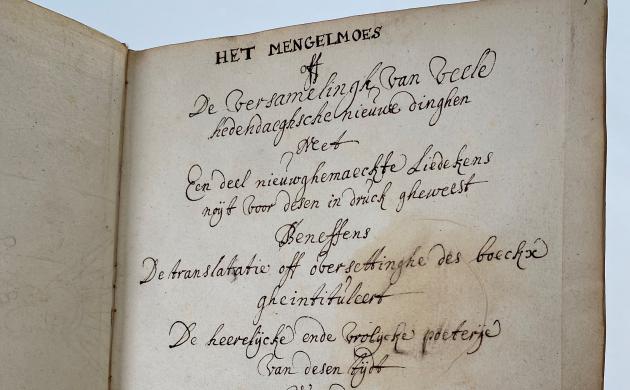 HET MENGELMOES
off
De versamelingh van veele
hedendaeghsche nieuwe dinghen
Meet
Een deel nieuwghemaeckte Liedekens
noÿt voor desen in druck gheweest
Beneffens
De translatatie off oversettinghe des boeckx
gheintituleert
De heerelÿcke ende vrolÿcke poeterÿe
van desen tÿdt